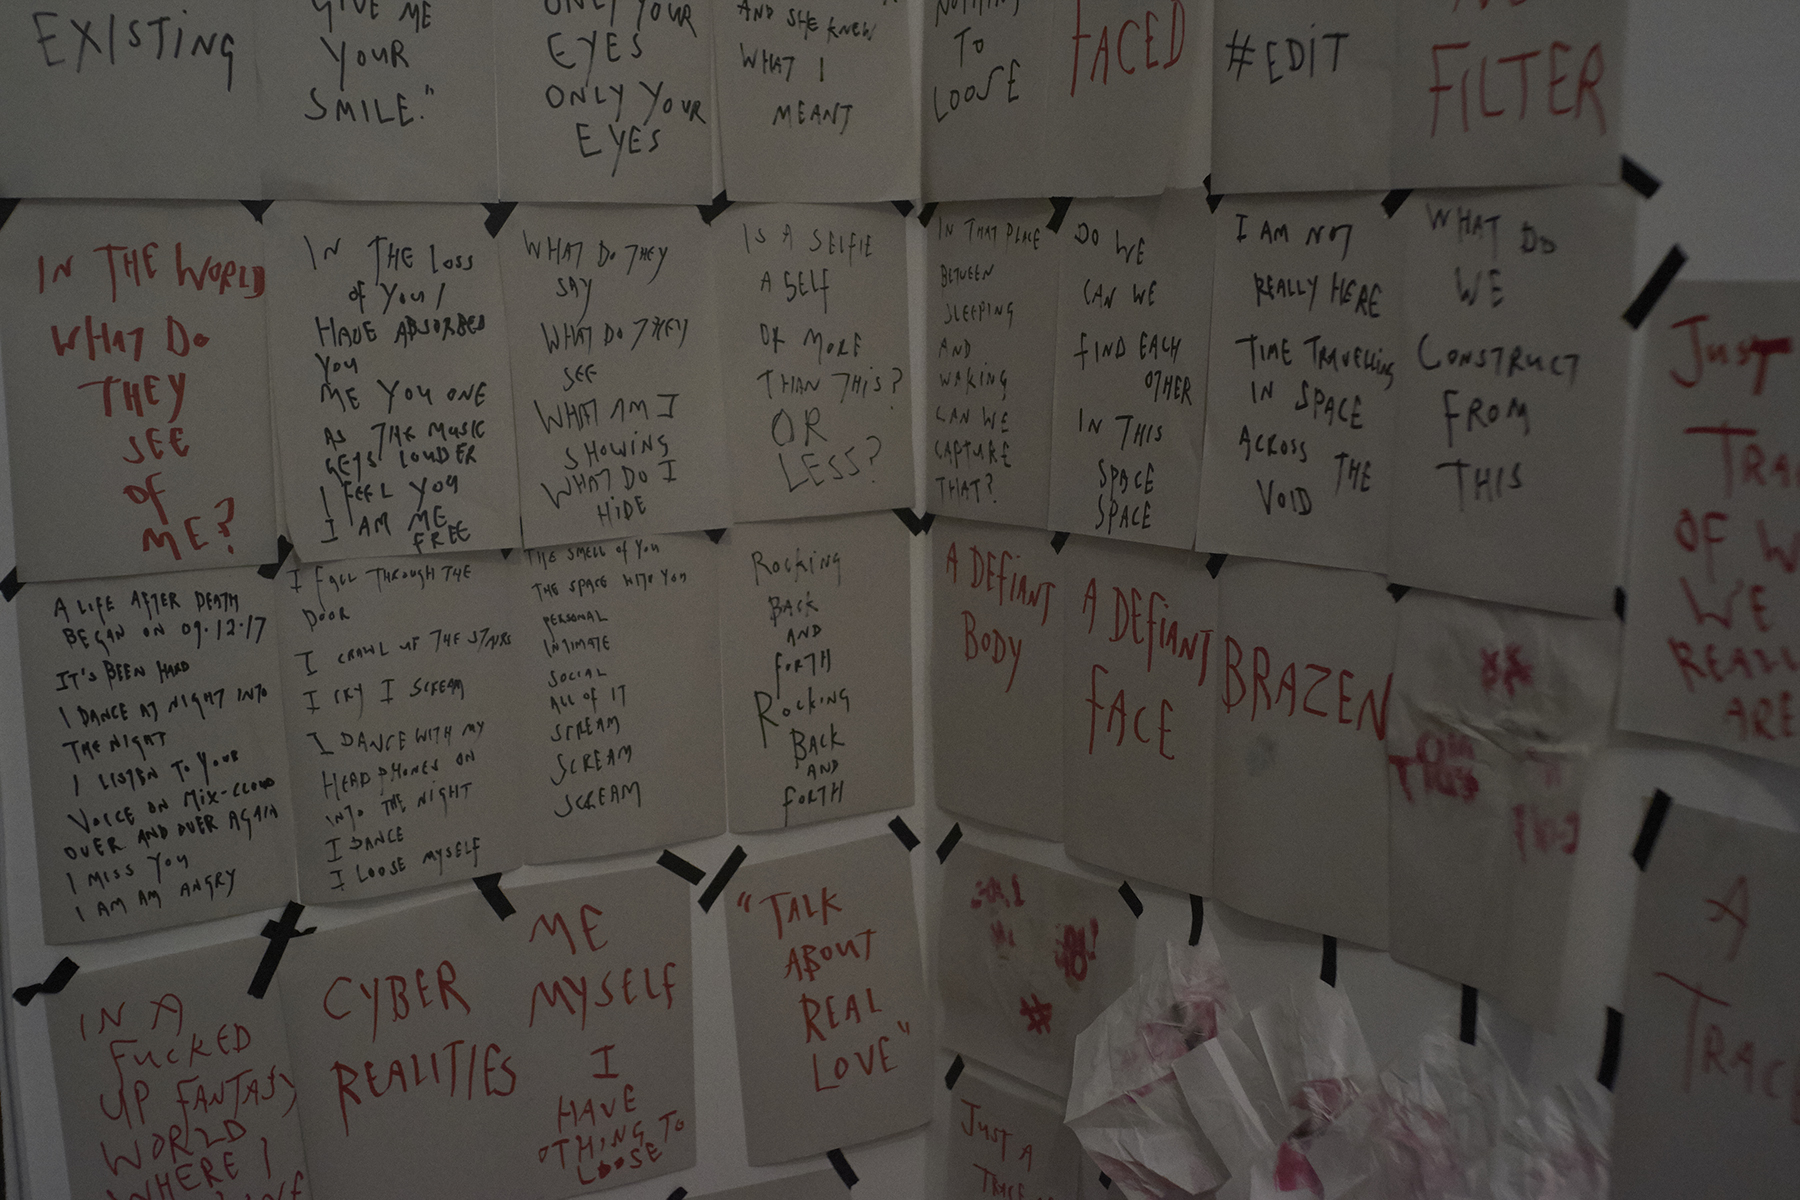 EXISTING
GIVE ME
YOUR
SMILE."
ONLY YOUR
EYES
ONLY YOUR
EYES
AND SHE KNEW
WHAT I
MEANT
NOTHING
TO
LOOSE
FACED
#EDIT
FILTER
IN THE WORLD
WHAT DO
THEY
SEE
OF
ME?
IN THE LOSS
OF YOU I
HAVE ABSORBED
YOU
ME YOU ONE
AS THE MUSIC
GETS LOUDER
I FEEL YOU
I AM ME
FREE
WHAT DO THEY
SAY
WHAT DO THEY
SEE
WHAT AM I
SHOWING
WHAT DO I
HIDE
IS A SELFIE
A SELF
OR MORE
THAN THIS?
OR
LESS?
IN THAT PLACE
BETWEEN
SLEEPING
AND
WAKING
CAN WE
CAPTURE
THAT?
DO WE
CAN WE
FIND EACH
OTHER
IN THIS
SPACE
SPACE
I AM NOT
REALLY HERE
TIME TRAVELLING
IN SPACE
ACROSS THE
VOID
WHAT DO
WE
CONSTRUCT
FROM
THIS
JUST
TRA
OF W
WE
REALL
ARE
A LIFE AFTER DEATH
BEGAN ON 09.12.17
IT'S BEEN HARD
I DANCE AT NIGHT INTO
THE NIGHT
I LISTEN TO YOUR
VOICE ON MIX-CLOUD
OVER AND OVER AGAIN
I MISS YOU
I AM AM ANGRY
I FALL THROUGH THE
DOOR
I CRAWL UP THE STAIRS
I CRY I SCREAM
I DANCE WITH MY
HEADPHONES ON
INTO THE NIGHT
I DANCE
I LOOSE MYSELF
THE SMELL OF YOU
THE SPACE INTO YOU
PERSONAL
INTIMATE
SOCIAL
ALL OF IT
SCREAM
SCREAM
SCREAM
ROCKING
BACK
AND
FORTH
ROCKING
BACK
AND
FORTH
A DEFIANT
BODY
A DEFIANT
FACE
BRAZEN
IN A
FUCKED
UP FANTASY
WORLD
WHERE I
CYBER
REALITIES
ME
MYSELF
I
HAVE
OTHING TO
LOOSE
"TALK
ABOUT
REAL
LOVE"
#
JUST A
TRACE
A
TRACE